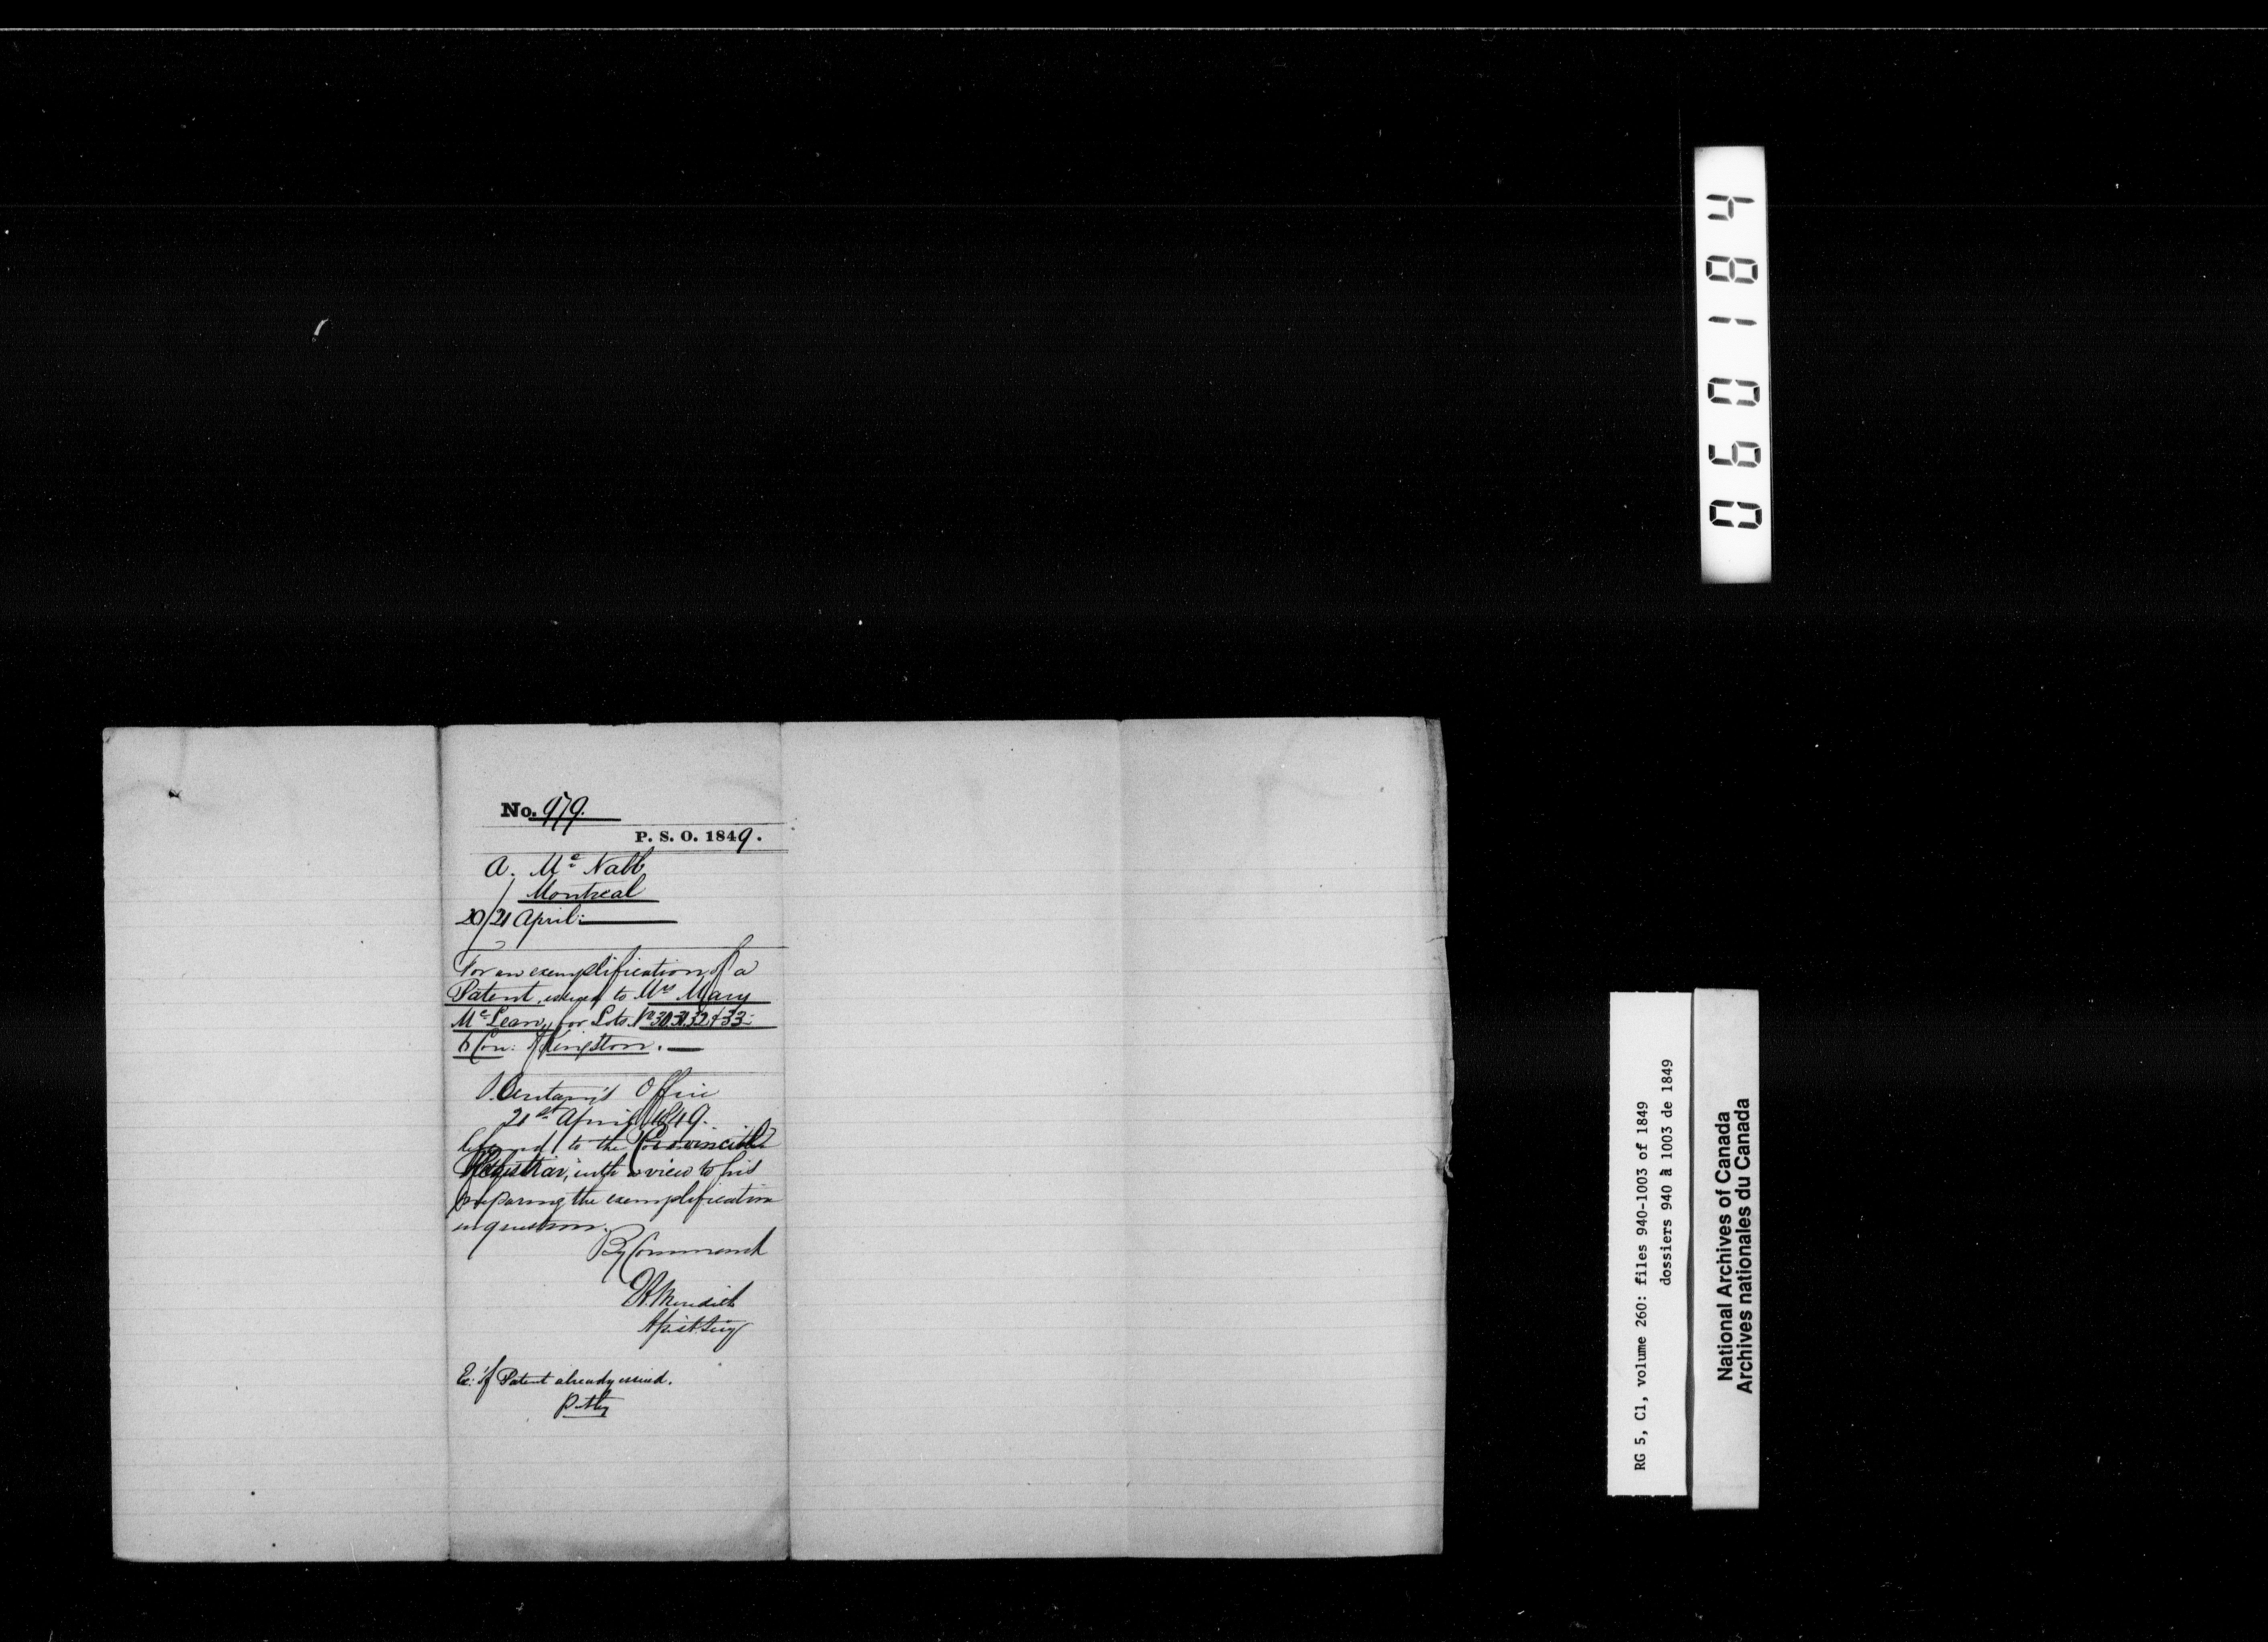 No. 979.
P. S. O. 1849.
A. Mc Nabb
Montreal
20/21 April:
For an exemplification of a
Patent issued to Mrs Mary
McLean, for Lots No 30.31.32 & 33-
6 Con: Kingston.
Office
21st April 1849.
Referred to the Provincial
Registrar, with a view to his
preparing the exemplification
in question.
By Command
Meredith
Ex: if Patent already issued.
060184
RG 5, C1, volume 260: files 940-1003 of 1849
dossiers 940 à 1003 de 1849
National Archives of Canada
Archives nationales du Canada